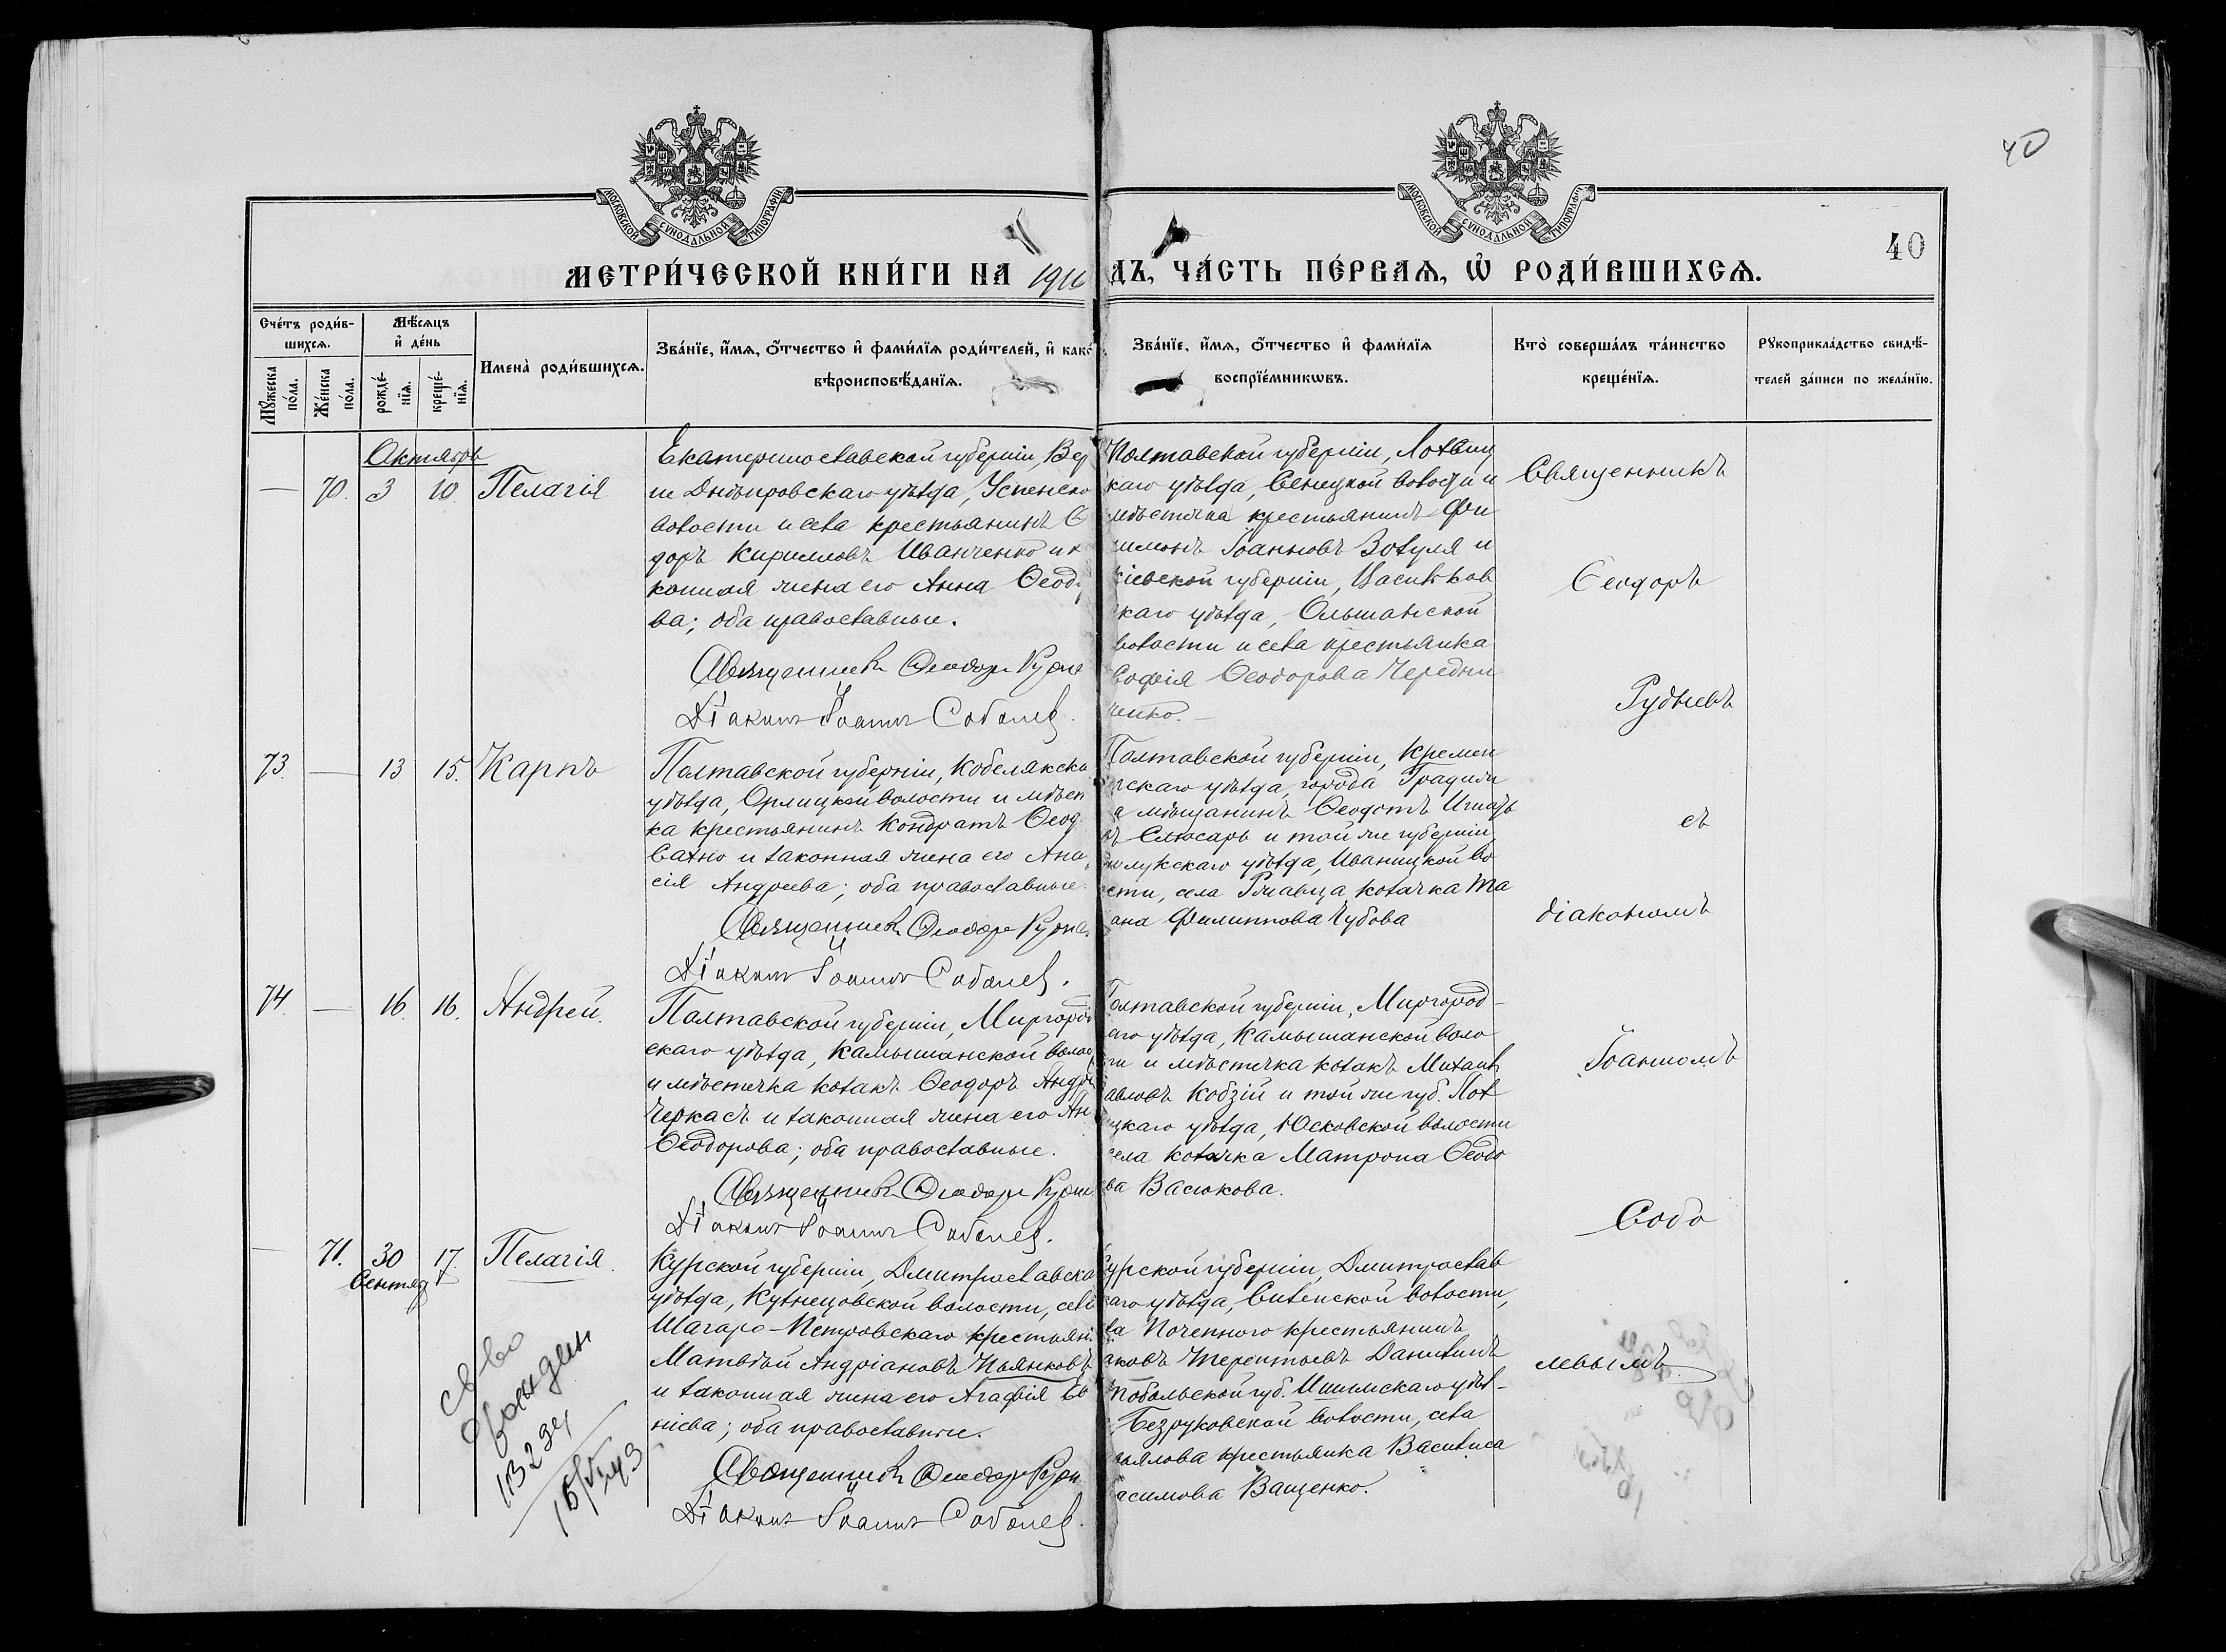 40
40
МОСКОВСКОЙ СѴНОДАЛЬНОЙ ТИПОГРАФІИ
МОСКОВСКОЙ СѴНОДАЛЬНОЙ ТИПОГРАФІИ
МЕТРИ́ЧЕСКОЙ КНИ́ГИ НА 191
ДЪ, ЧА́СТЬ ПЕ́РВАѦ, Ѡ҆ РОДИ́ВШИХСѦ.
Сче́тъ роди́в-
шихсѧ.
Мѣ́сѧцъ
и҆ де́нь
Мꙋ́жеска по́ла.
Же́нска по́ла.
рожде́-нїѧ.
креще́-нїѧ.
Имена̀ роди́вшихсѧ.
Зва́нїе, и҆́мѧ, ѻ҆́тчество и҆ фами́лїѧ роди́телей, и҆ како́
вѣроисповѣ́данїѧ.
Зва́нїе, и҆́мѧ, ѻ҆́тчество и҆ фами́лїѧ
воспрїе́мникѡвъ.
Кто̀ соверша́лъ та́инство
креще́нїѧ.
Рꙋкоприкла́дство свидѣ́-
телей за́писи по жела́нїю.
Октябрь
— 70. 3 10. Пелагія
Екатеринославской губерніи, Вер
не Днѣпровскаго уѣзда, Успенско
волости и села крестьянинъ Ѳ
доръ Кирилловъ Иванченко и
конная жена его Анна Ѳеод
ва; оба православные.
Священникъ Ѳеодоръ Рудне
Діаконъ Іоаннъ Соболев.
Полтавской губерніи, Лохвиц
каго уѣзда, Сенецкой волости и
мѣстечка крестьянинъ Фи
лимонъ Іоанновъ Зозуля и
Кіевской губерніи, Васильков
скаго уѣзда, Ольшанской
волости и села крестьянка
Софія Ѳеодорова Чередни
ченко.
73. — 13 15. Карпъ
Полтавской губерніи, Кобелякска
уѣзда, Орлицкой волости и мѣстеч
ка крестьянинъ Кондратъ Ѳеод
и законная жена его Ана
сія Андреева; оба православные.
Священникъ Ѳеодоръ Рудне
Діаконъ Іоаннъ Соболев.
Полтавской губерніи, Кремен
гскаго уѣзда, города Градиж
а мѣщанинъ Ѳеодотъ Игнать
въ Слюсарь и той же губерніи
лукскаго уѣзда, Иваницкой во
сти, села Ржавца козачка Та
ана Филиппова Чубова
74. — 16. 16. Андрей.
Полтавской губерніи, Миргород
скаго уѣзда, Камышанской волос
и мѣстечка козакъ Ѳеодоръ Андре
Черкасъ и законная жена его Ан
Ѳеодорова; оба православные.
Священникъ Ѳеодоръ Рудне
Діаконъ Іоаннъ Соболев.
Полтавской губерніи, Миргород-
аго уѣзда, Камышанской воло
ти и мѣстечка козакъ Михаилъ
авловъ Кобзій и той же губ. Лох
ицкаго уѣзда, Юсковской волости
села козачка Матрона Ѳеодо
ва Васюкова.
— 71. 30 17. Пелагія.
Сентяб
Курской губерніи, Дмитріевска
уѣзда, Кузнецовской волости, села
Шагаро-Петровскаго крестьяни
Матвѣй Андріановъ Пьянковъ
и законная жена его Агафія Ев
ніева; оба православные.
Священникъ Ѳеодоръ Рудн
Діаконъ Іоаннъ Соболев.
Курской губерніи, Дмитріев
каго уѣзда,
ла Почепного крестьянинъ
аковъ Терентьевъ Данилинъ
Тобольской губ. Ишимскаго уѣз-
Безруковской волости, села
крестьянка Васильса
асимова Ващенко.
Священникъ
Ѳеодоръ
Рудневъ
съ
діакономъ
Іоанномъ
Собо
левымъ.
св-во